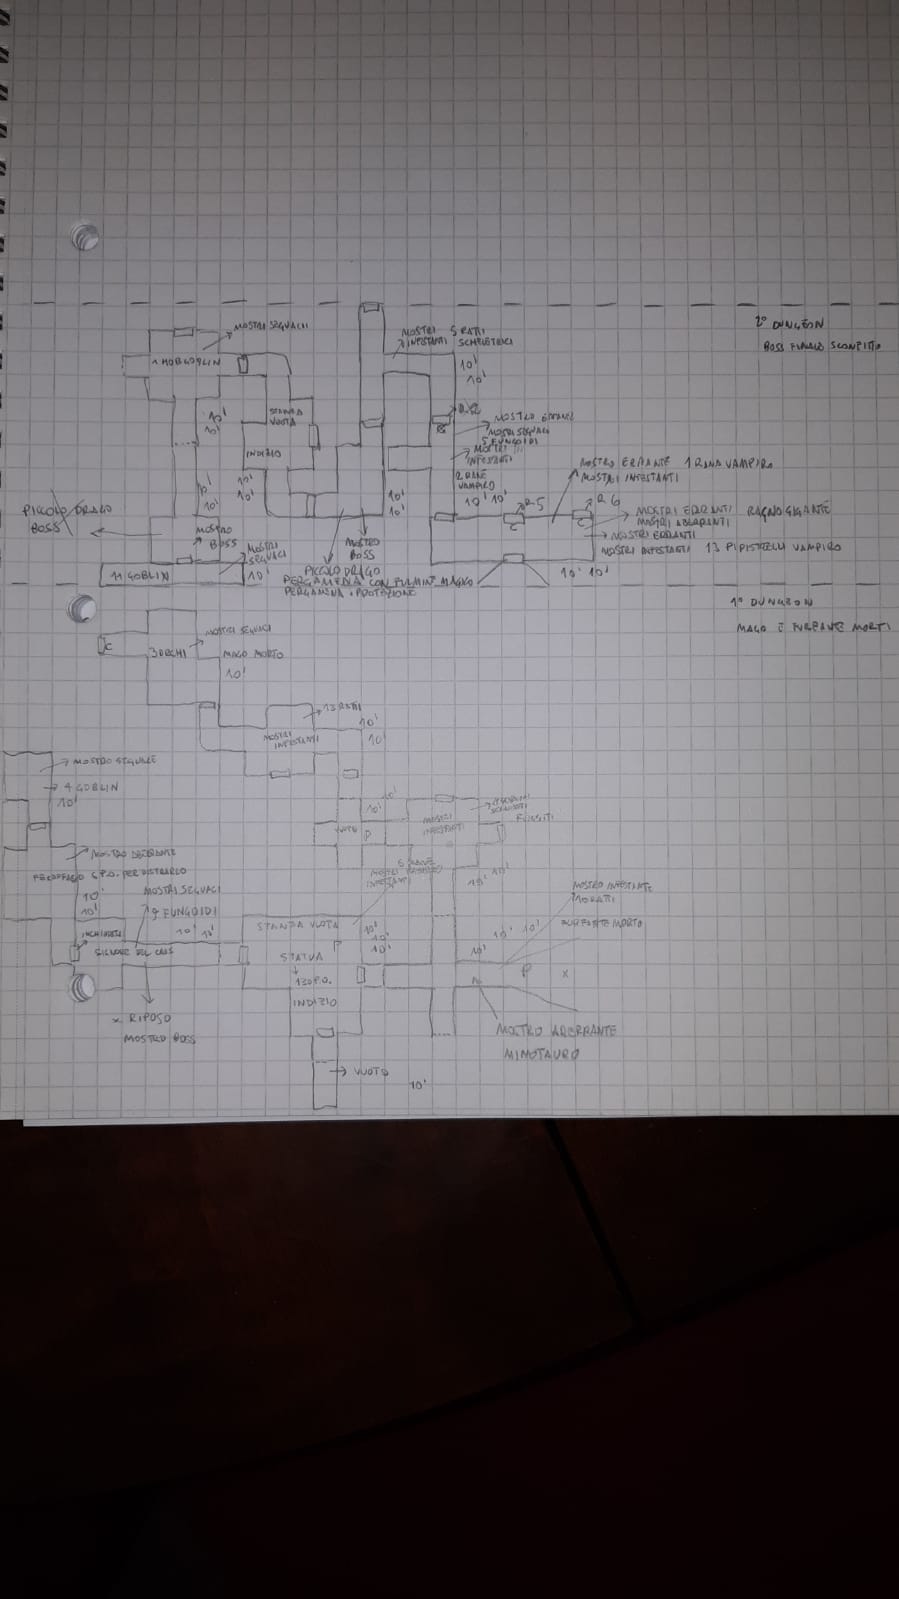 2° DUNGEON
BOSS FINALE SCONFITTO
MOSTRI SEGUACI
1 HOBGOBLIN
MOSTRI 5 RATTI
INFESTANTI SCHELETRICI
10'
10'
STANZA
VUOTA
INDIZIO
10'
10'
10'
10'
10'
10'
MOSTRO ERRANTE
MOSTRI SEGUACI
5 FUNGOIDI
MOSTRI
INFESTANTI
2 RANE
VAMPIRO
10' 10'
MOSTRO ERRANTE 1 RANA VAMPIRO
MOSTRI INFESTANTI
R5
R6
C
C
MOSTRI ERRANTI RAGNO GIGANTE
MOSTRI ABERRANTI
MOSTRI ERRANTI
MOSTRI INFESTANTI 13 PIPISTRELLI VAMPIRO
10' 10'
10'
10'
PICCOLO DRAGO
BOSS
MOSTRO
BOSS
MOSTRI
SEGUACI
10'
11 GOBLIN
MOSTRO
BOSS
PICCOLO DRAGO
PERGAMENA CON FULMINE MAGICO
PERGAMENA PROTEZIONE
1° DUNGEON
MAGO E FURFANTE MORTI
C
MOSTRI SEGUACI
3 ORCHI
MAGO MORTO
10'
13 RATTI
MOSTRI
INFESTANTI
10'
10'
MOSTRO SEGUACE
4 GOBLIN
10'
VUOTO
P
10'
10'
MOSTRI
INFESTANTI
FUGGITI
10' 10'
PER DISTRARLO
10'
10'
MOSTRI SEGUACI
9 FUNGOIDI
10' 10'
SIGNORE DEL CAOS
X RIPOSO
MOSTRO BOSS
STANZA VUOTA
P
STATUA
130 P.O.
INDIZIO
10'
10'
10'
10' 10'
10'
MOSTRO INFESTANTE
10 RATTI
FURFANTE MORTO
P
X
MOSTRO ABERRANTE
MINOTAURO
VUOTO
10'